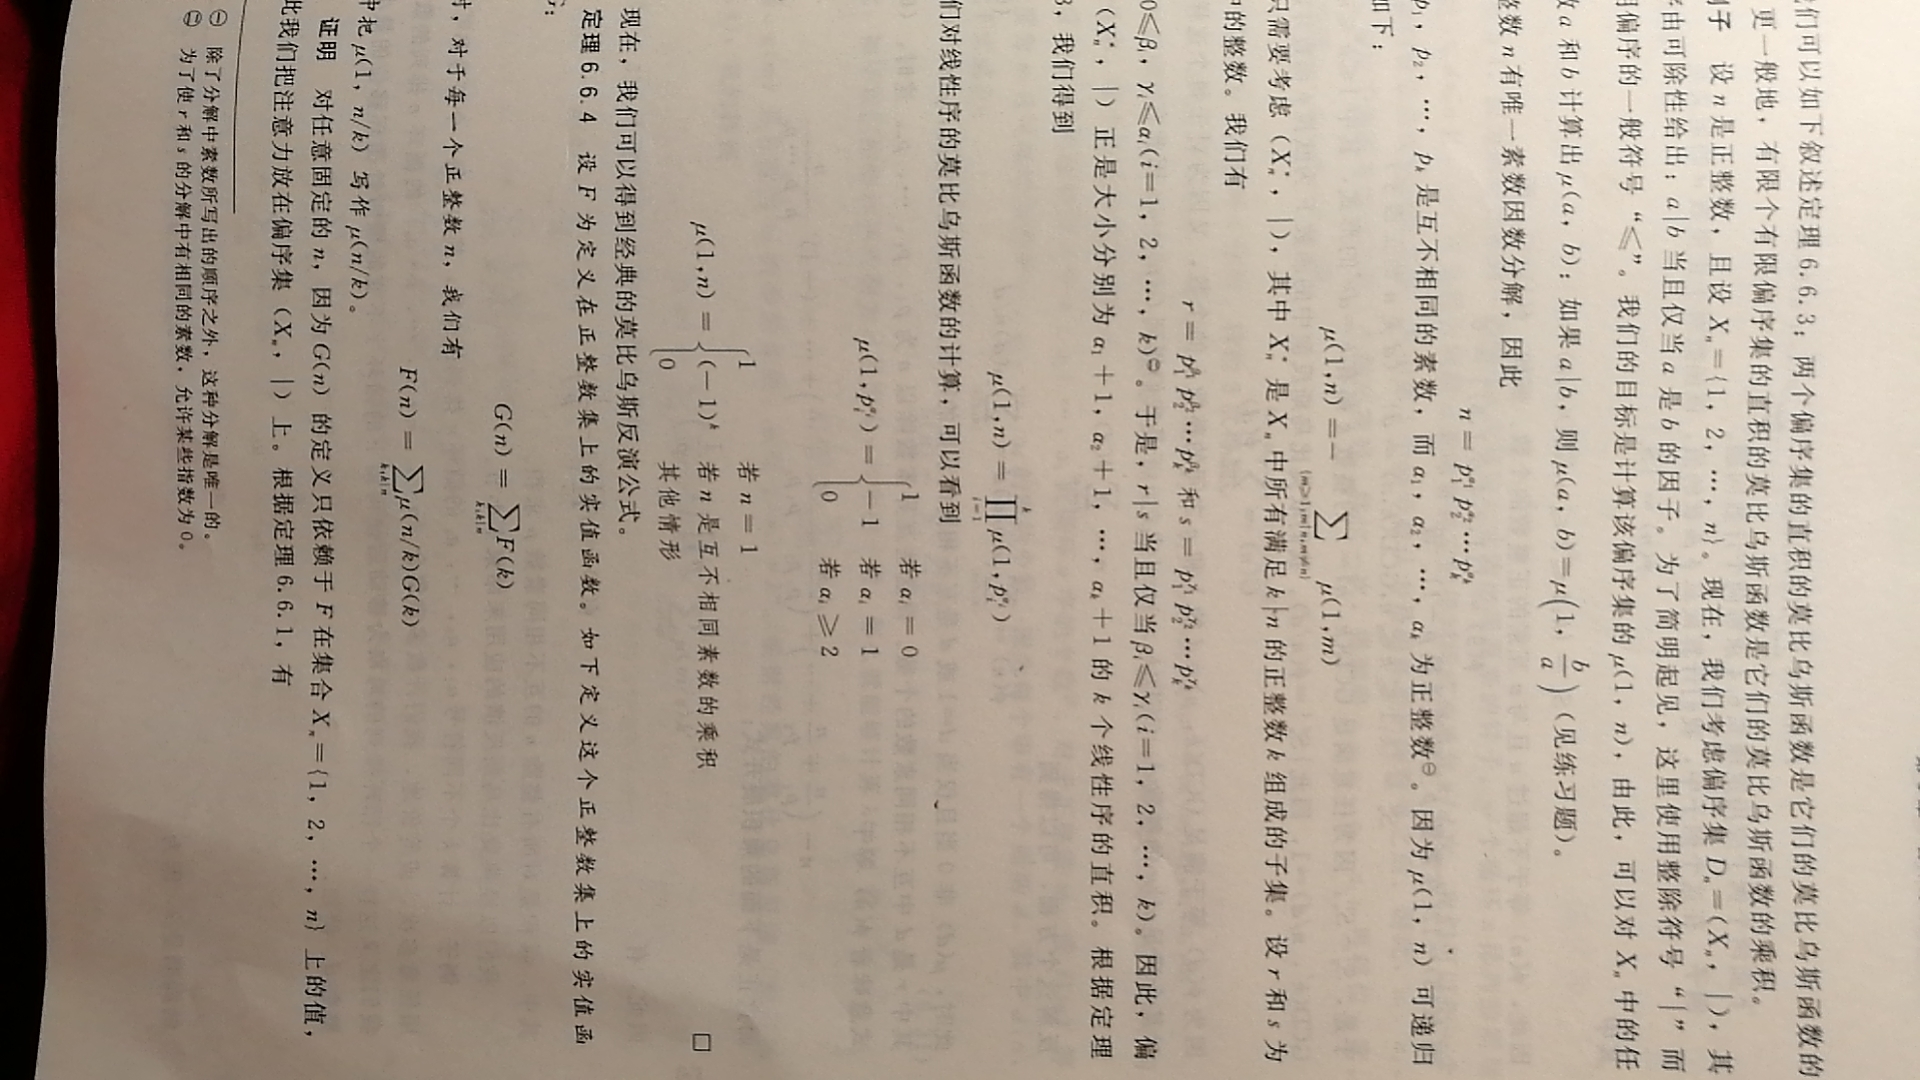 们可以如下叙述定理6.6.3：两个偏序集的直积的莫比乌斯函数是它们的莫比乌斯函数的
更一般地，有限个有限偏序集的直积的莫比乌斯函数是它们的莫比乌斯函数的乘积。
子 设n是正整数，且设Xₙ={1，2，…，n}。现在，我们考虑偏序集Dₙ=(Xₙ，|)，其
序由可除性给出：a|b当且仅当a是b的因子。为了简明起见，这里使用整除符号“|”而
用偏序的一般符号“≤”。我们的目标是计算该偏序集的μ(1，n)，由此，可以对Xₙ中的任
数a和b计算出μ(a，b)：如果a|b，则μ(a，b)=μ(1，b/a)（见练习题）。
整数n有唯一素因数分解，因此
n = p₁^α₁ p₂^α₂ … pₖ^αₖ
p₁，p₂，…，pₖ是互不相同的素数，而α₁，α₂，…，αₖ为正整数㊀。因为μ(1，n)可递归
如下：
μ(1,n) = − ∑_{m≥1,m|n,m≠n} μ(1,m)
只需要考虑(Xₙ*，|)，其中Xₙ*是Xₙ中所有满足k|n的正整数k组成的子集。设r和s为
中的整数。我们有
r = p₁^β₁ p₂^β₂ … pₖ^βₖ 和 s = p₁^γ₁ p₂^γ₂ … pₖ^γₖ
0≤βᵢ，γᵢ≤αᵢ(i=1，2，…，k)㊁。于是，r|s当且仅当βᵢ≤γᵢ(i=1，2，…，k)。因此，偏
(Xₙ*，|)正是大小分别为α₁+1，α₂+1，…，αₖ+1的k个线性序的直积。根据定理
3，我们得到
μ(1,n) = ∏_{i=1}^{k} μ(1,pᵢ^αᵢ)
们对线性序的莫比乌斯函数的计算，可以看到
1 若αᵢ = 0
μ(1,pᵢ^αᵢ) = { −1 若αᵢ = 1
0 若αᵢ ≥ 2
1 若n = 1
μ(1,n) = { (−1)^k 若n是互不相同素数的乘积
0 其他情形 □
现在，我们可以得到经典的莫比乌斯反演公式。
定理6.6.4 设F为定义在正整数集上的实值函数。如下定义这个正整数集上的实值函
：
G(n) = ∑_{k:k|n} F(k)
，对于每一个正整数n，我们有
F(n) = ∑_{k:k|n} μ(n/k)G(k)
中把μ(1，n/k)写作μ(n/k)。
证明 对任意固定的n，因为G(n)的定义只依赖于F在集合Xₙ={1，2，…，n}上的值，
此我们把注意力放在偏序集(Xₙ，|)上。根据定理6.6.1，有
㊀ 除了分解中素数所写出的顺序之外，这种分解是唯一的。
㊁ 为了使r和s的分解中有相同的素数，允许某些指数为0。